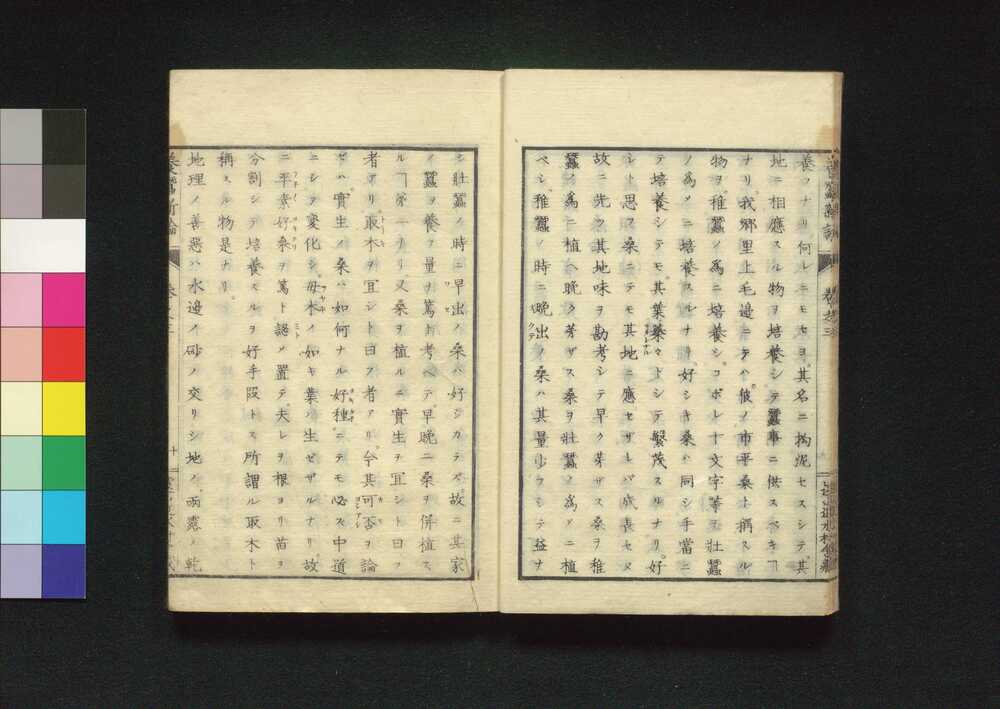 養フナリ。何レニモセヨ。其名ニ拘泥セスシテ其
地ニ相應スル物ヲ培養シテ蠶事ニ供スベキヿ
ナリ。我郷里上毛邊ニテハ彼ノ市平桑ト稱スル
物ヲ。稚蠶ノ為ニ培養シ。コボレ十文字等ヲ壮蠶
ノ為メニ培養スルナリ。好シキ桑ハ同シ手當ニ
テ培養シテモ。其葉蓁々トシテ繁茂スルナリ。好
シト思ス桑ニテモ其地ニ應セザレバ成長セヌ
故ニ先ク其地味ヲ勘考シテ早ク芽ザス桑ヲ稚
蠶ノ為ニ植ヘ晩ク芽ザス桑ヲ壮蠶ノ為メニ植
ベシ。稚蠶ノ時ニ晩出ノ桑ハ其量少フシテ益ナ
シ壮蠶ノ時ニ早出ノ桑ハ好シカラズ。故ニ其家
ノ蠶ヲ養フ量ヲ篤ト考ヘテ。早晩ニ桑ヲ併植ス
ルヿ第一ナリ。又桑ヲ植ルニ實生ヲ宜シト曰フ
者アリ。取木ヲ宜シト曰フ者アリ。今其可否ヲ論
ゼハ。實生ノ桑ハ如何ナル好種ニテモ必ス中道
ニシテ変化シ。母木ノ如キ葉ハ生ゼザルナリ。故
ニ平素好桑ヲ篤ト認メ置テ。夫レヲ根ヨリ苗ヲ
分割シテ培養スルヲ好手段トス所謂ル取木ト
稱スル物是ナリ。
地理ノ善惡ハ水邊ノ砂ノ交リシ地ノ。雨露ノ乾
養蠶新論
十